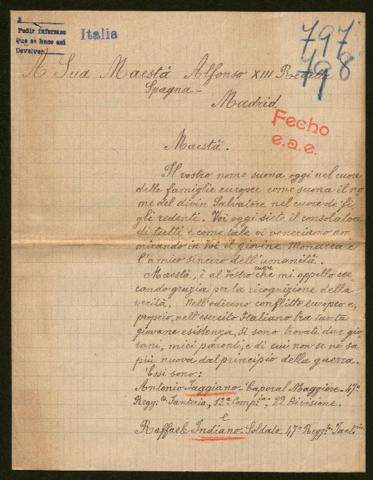 A
Pedir informes
Que se hace así
Devolver
Italia
797
798
A Sua Maestà Alfonso XIII Re della
Spagna -
Madrid
Fecho
e.a.e.
Maestà.
Il vostro nome suona oggi nel cuore
delle famiglie europee come suona il no
me del divin Salvatore nel cuore de' fi
gli redenti. Voi oggi siete il consolatore
di tutti e come tale vi veneriamo am
mirando in Voi il giovine Monarca e
l'amico sincero dell'umanità.
Maestà, è al Vostro cuore che mi appello cer
cando grazia per la ricognizione della
verità. Nell'odierno conflitto europeo e,
proprio, nell'esercito Italiano, tra tante
giovane esistenza, si sono trovati due gio
vani, miei parenti, e di cui non se ne sa
più nuova dal principio della guerra.
Essi sono:
Antonio Taggiano - Caporal Maggiore - 47º
Regg.to Fanteria, 12ª Comp.ia; 22 Divisione.
e
Raffaele Indiano - Soldato - 47º Regg.to Fant.ia